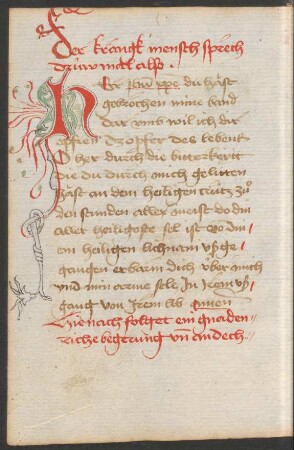 Der kranck mensch sprech
drüw mal also .
Her jhesu xpe du häst
gebrochen mine band
dar umb wil ich dir
opfren dz opfer des lebent
O her durch die bitterkeit
die du durch mich geliten
häst an dem heiligen crütz zů
den stunden aller meist do din
aller heiligoste sel ist von din
em heiligen lichnam vßge
gangen erbarm dich über mich
vnd min arme sele In irem vß
gang von irem lib Amen
Hienach folget ein gnaden
riche begerung vn andech